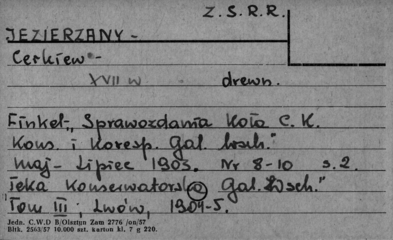 Z.S.R.R.
JEZIERZANY -
Cerkiew -
XVII w drewn.
Finkel: "Sprawozdania Koła C.K.
Kons. i Koresp. Gal. wsch."
maj - Lipiec 1903. Nr 8-10 s.2.
Teka Konserwatorska Gal. Wsch."
Tom III; Lwów, 1904-5.
Jedn. C.W.D B/Olsztyn Zam 2776 /on/57
Bltk. 2563/57 10.000 szt. karton kl. 7 g 220.